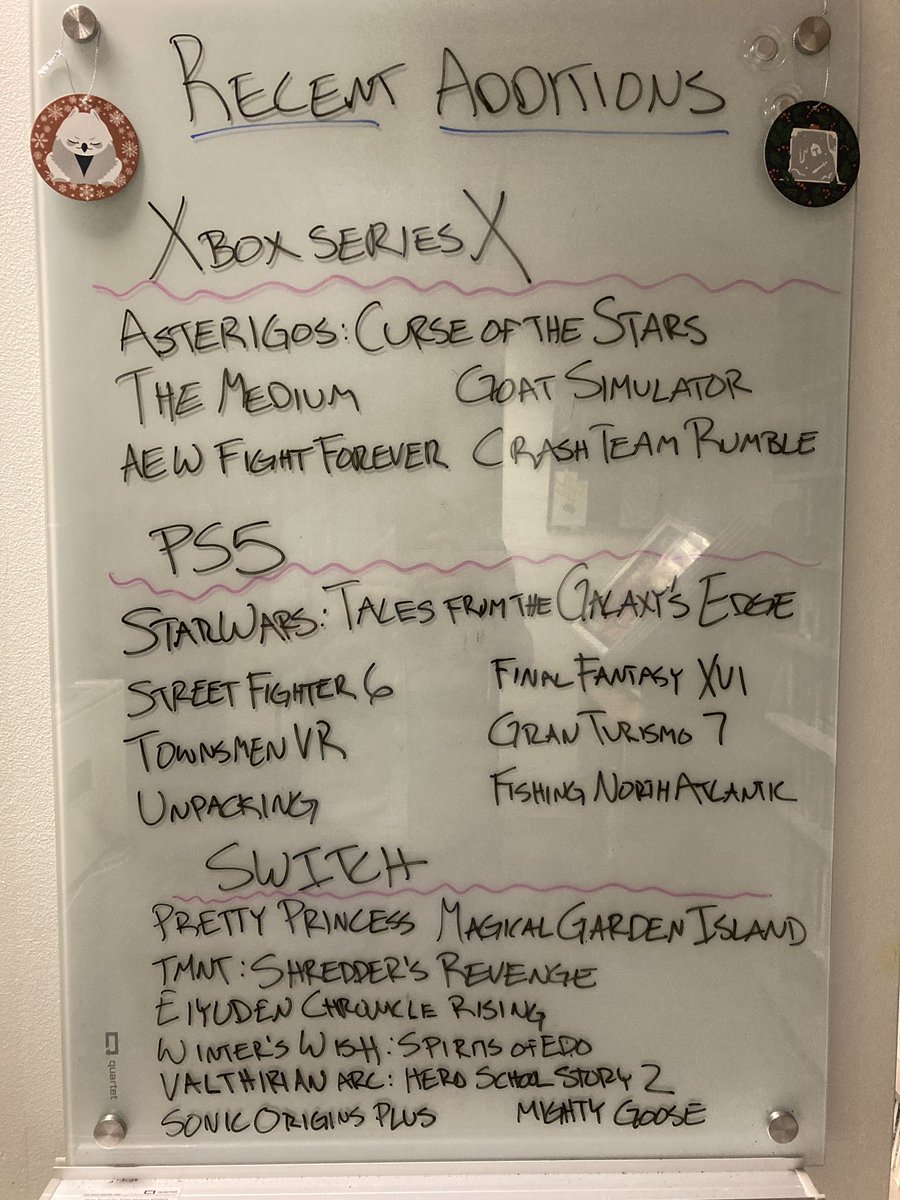 RECENT ADDITIONS
XBOX SERIES X
ASTERIGOS: CURSE OF THE STARS
THE MEDIUM GOAT SIMULATOR
AEW FIGHT FOREVER CRASH TEAM RUMBLE
PS5
STAR WARS: TALES FROM THE GALAXY'S EDGE
STREET FIGHTER 6 FINAL FANTASY XVI
TOWNSMEN VR GRAN TURISMO 7
UNPACKING FISHING NORTH ATLANTIC
SWITCH
PRETTY PRINCESS MAGICAL GARDEN ISLAND
TMNT: SHREDDER'S REVENGE
EIYUDEN CHRONICLE RISING
WINTER'S WISH: SPIRITS OF EDO
VALTHIRIAN ARC: HERO SCHOOL STORY 2
SONIC ORIGINS PLUS MIGHTY GOOSE
quartet
quartet